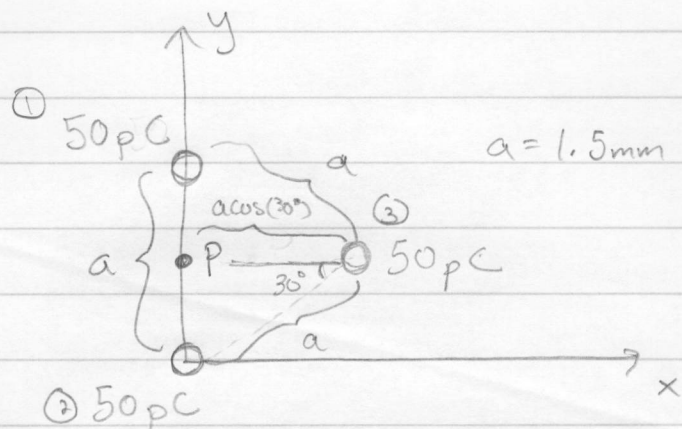 y
①
50pC
a
a = 1.5mm
acos(30°)
③
a
P
50pC
30°
a
x
② 50pC